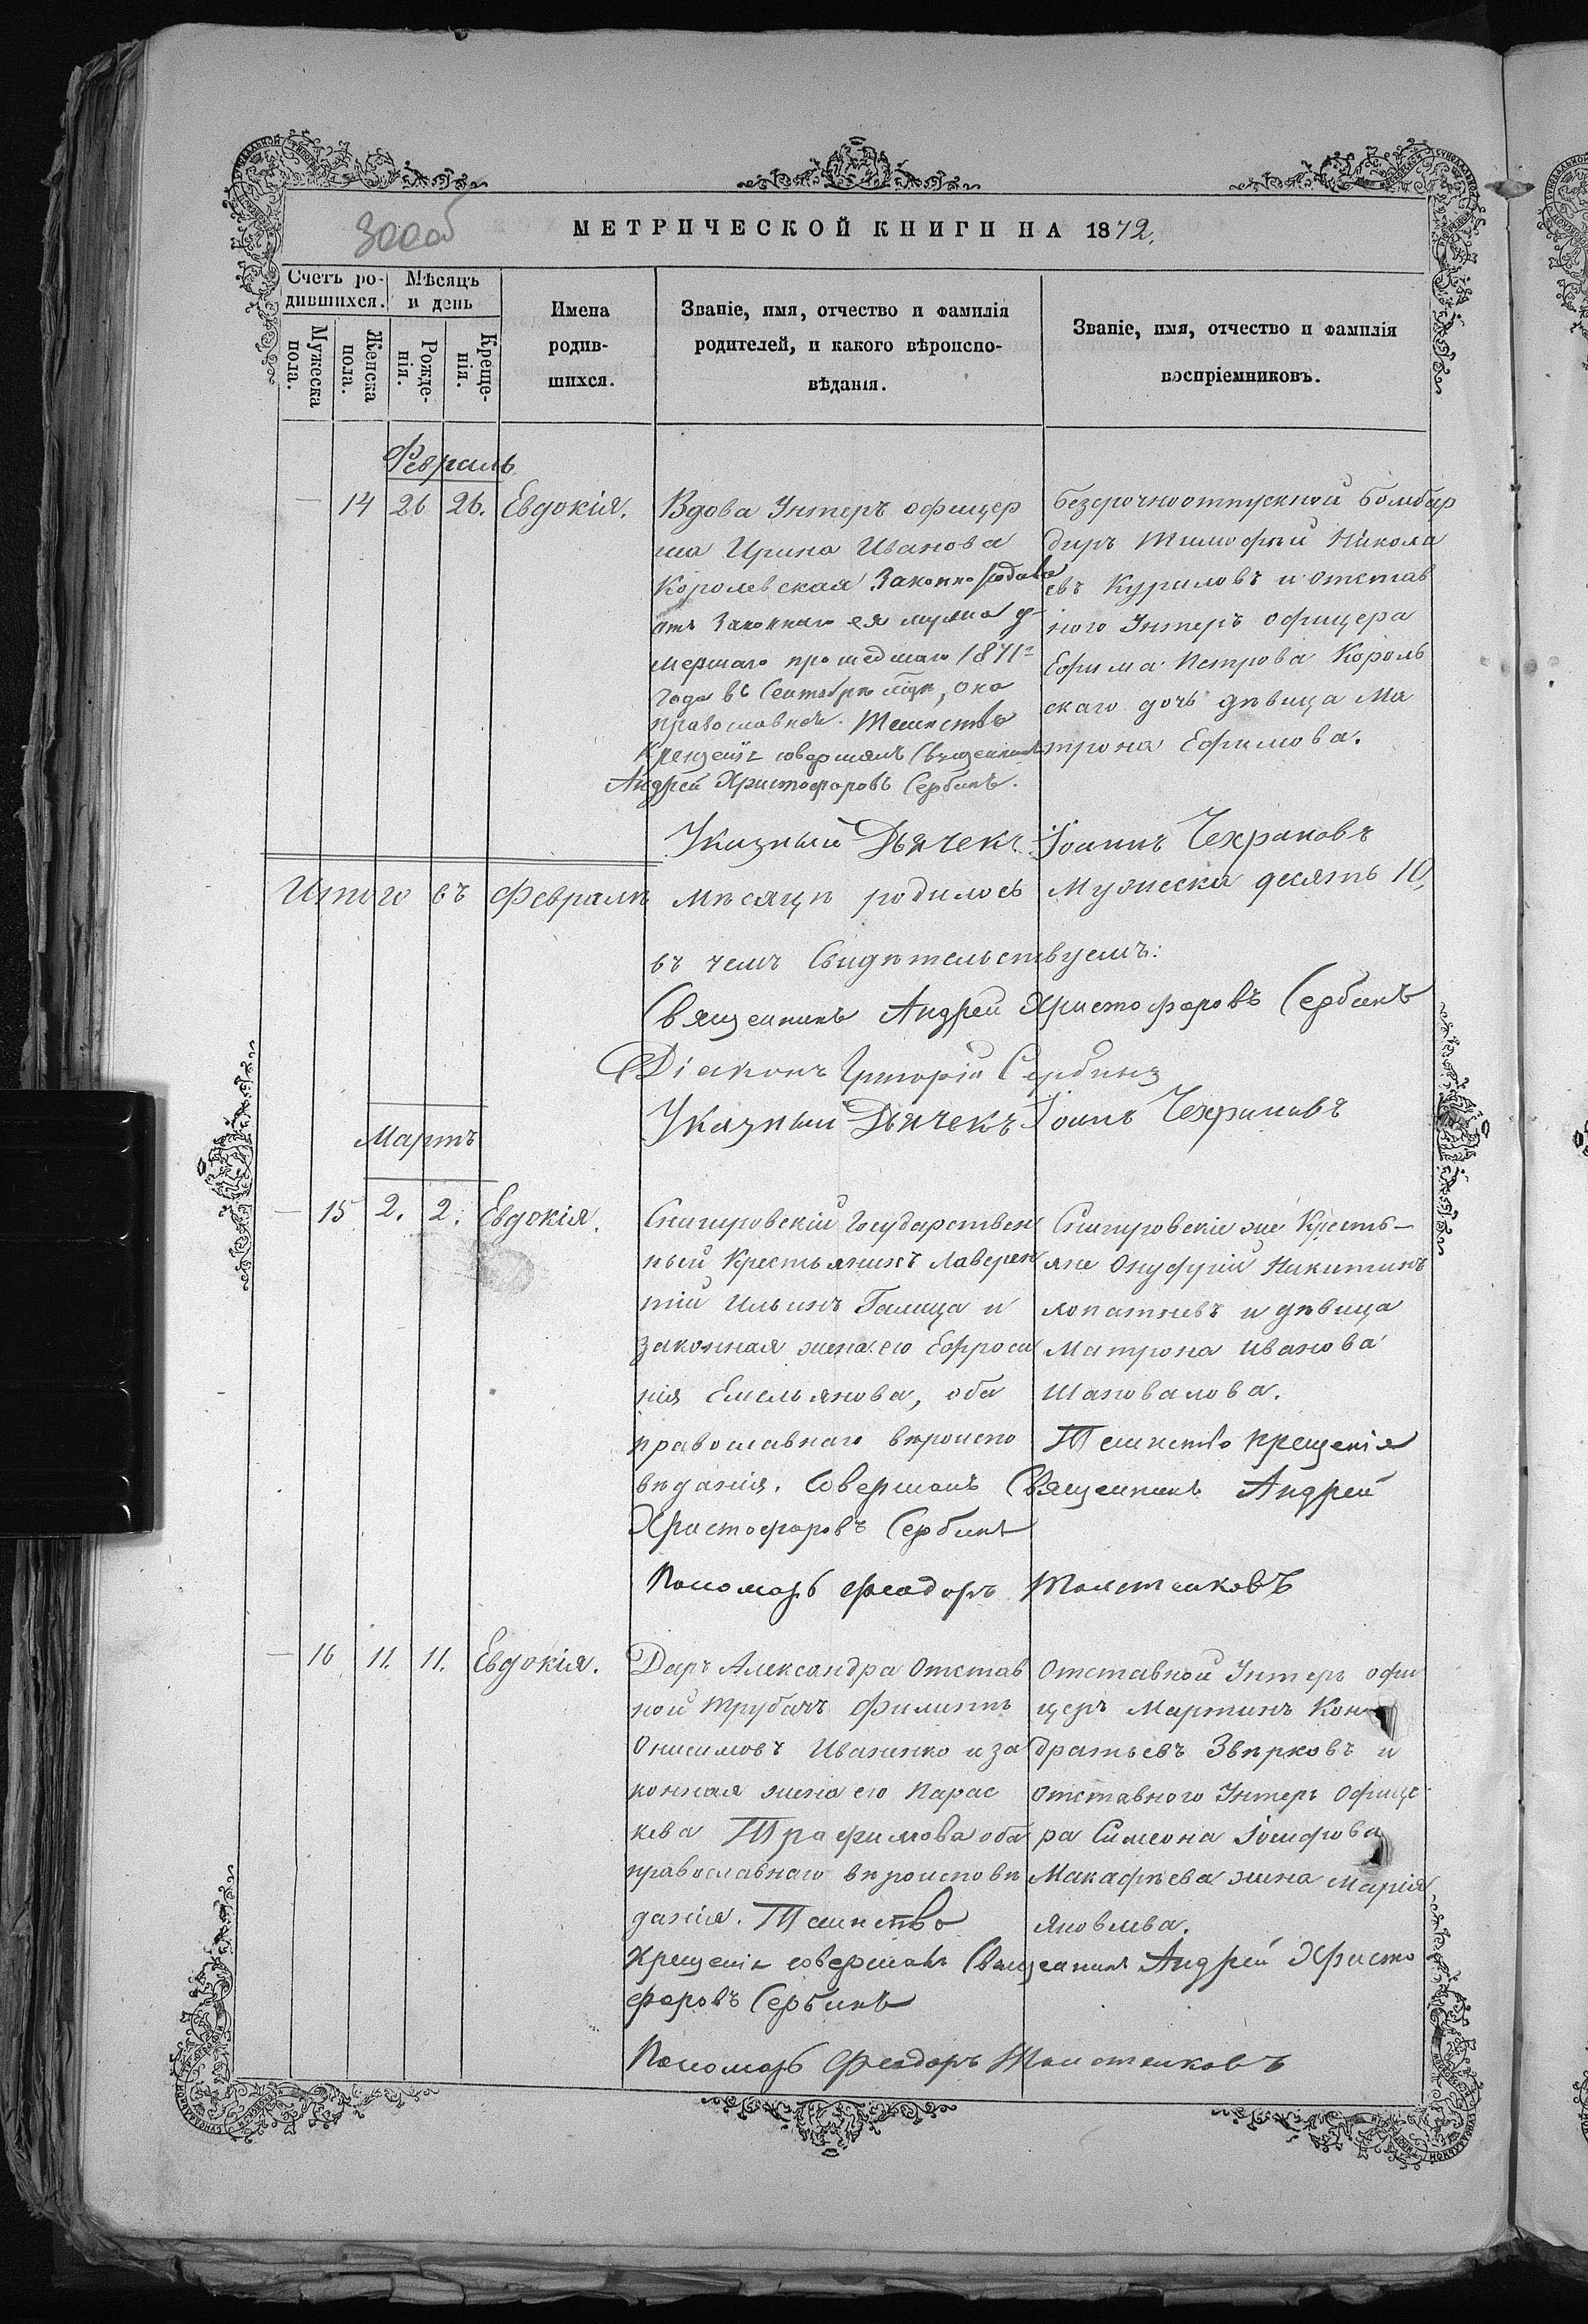 300об
МЕТРИЧЕСКОЙ КНИГИ НА 1872.
Счетъ ро-
дившихся.
Мужеска
пола.
Женска
пола.
Мѣсяцъ
и день
Рожде-
нія.
Креще-
нія.
Имена
родив-
шихся.
Званіе, имя, отчество и фамилія
родителей, и какого вѣроиспо-
вѣданія.
Званіе, имя, отчество и фамилія
воспріемниковъ.
Февраль
— 14 26 26. Евдокія.
Вдова Унтеръ офицер
ша Ирина Иванова
Королевская Законно
отъ Законнаго ея мужа у-
мершаго прошедшаго 1871г
года въ Сентябрѣ мцѣ, она
православная. Таинство
Крещенія совершалъ Священникъ
Андрей Христофоровъ Сербинъ.
безсрочноотпускной бомбар
диръ Тимофѣй Никола
евъ Куриловъ и отстав
ного Унтеръ офицера
Ефима Петрова Король
скаго дочь дѣвица Ма
трона Ефимова.
Указный Дьячекъ Іоаннъ Чехрановъ
Итого въ Февралѣ мѣсяцѣ родилось Мужеска десять 10,
въ чемъ Свидѣтельствуемъ:
Священникъ Андрей Христофоровъ Сербинъ
Діаконъ Григорій Сербинъ
Указный Дьячекъ Іоанъ Чехрановъ
Мартъ
— 15 2. 2. Евдокія.
Снигуровскій Государствен
ный Крестьянинъ Лаверен
тій Ильинъ Галица и
законная жена его Ефроси
нія Емельянова, оба
православнаго вѣроиспо
вѣданія. Совершалъ Священникъ Андрей
Христофоровъ Сербинъ
Снигуровскіе же Кресть-
яне Онуфрій Никитинъ
Лопатневъ и дѣвица
Матрона Иванова
Шаповалова.
Таинство Крещенія
Пономарь Феодоръ Толстенковъ
— 16 11. 11. Евдокія.
Деръ Александра Отстав
ной трубачъ Филиппъ
Онисимовъ Иваненко и за
конная жена его Парас
кева Трафимова оба
православнаго вѣроисповѣ
данія. Таинство
Крещенія совершалъ Священникъ Андрей Христо
форовъ Сербинъ
Отставной Унтеръ офи
церъ Мартинъ Кон
дратьевъ Звѣрковъ и
отставного Унтеръ Офице
ра Симеона Іосифова
Макафѣева жена Марія
Яковлева.
Пономарь Феодоръ Толстенковъ